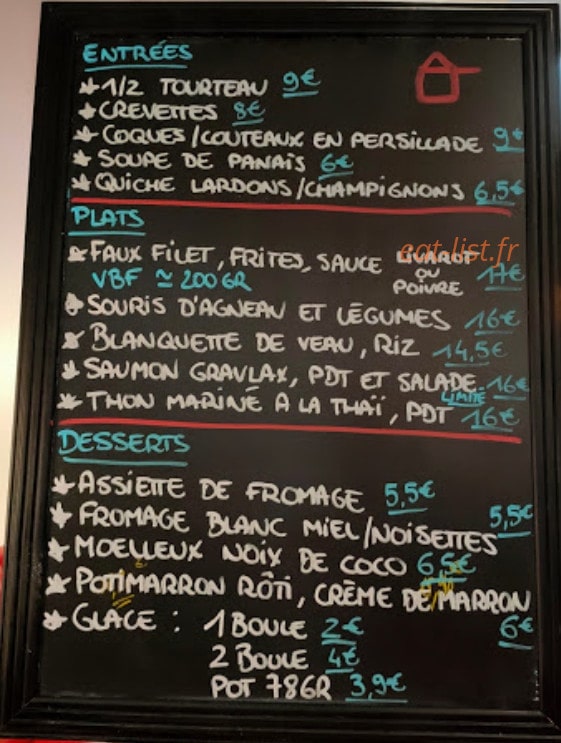 ENTRÉES
1/2 TOURTEAU 9€
CREVETTES 8€
COQUES/COUTEAUX EN PERSILLADE 9€
SOUPE DE PANAIS 6€
QUICHE LARDONS/CHAMPIGNONS 6,5€
PLATS
eat-list.fr
FAUX FILET, FRITES, SAUCE LIVAROT OU POIVRE 17€
VBF ≃ 200GR
SOURIS D'AGNEAU ET LÉGUMES 16€
BLANQUETTE DE VEAU, RIZ 14,5€
SAUMON GRAVLAX, PDT ET SALADE 16€
LIMITE
THON MARINÉ A LA THAÏ, PDT 16€
DESSERTS
ASSIETTE DE FROMAGE 5,5€
FROMAGE BLANC MIEL/NOISETTES 5,5€
MOELLEUX NOIX DE COCO 6,5€
POTIMARRON RÔTI, CRÈME DE MARRON 6€
GLACE : 1 BOULE 2€
2 BOULE 4€
POT 78GR 3,9€